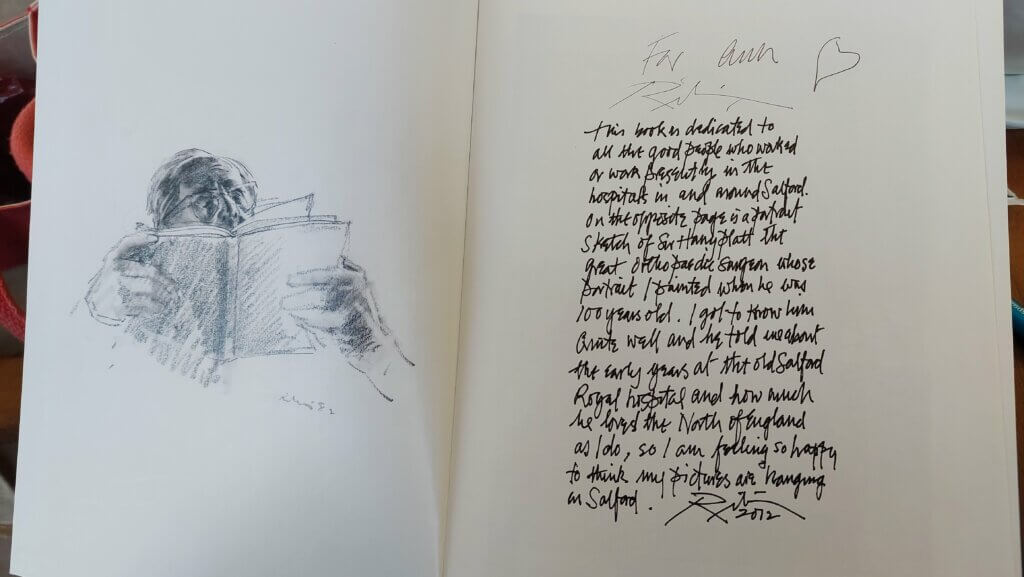 For Ann
This book is dedicated to
all the good people who worked
or work presently in the
hospitals in and around Salford.
On the opposite page is a portrait
sketch of Sir Harry Platt the
great Orthopaedic Surgeon whose
portrait I painted when he was
100 years old. I got to know him
Quite well and he told me about
the early years at the old Salford
Royal hospital and how much
he loved the North of England
as I do, so I am feeling so happy
to think my pictures are hanging
in Salford.
2012